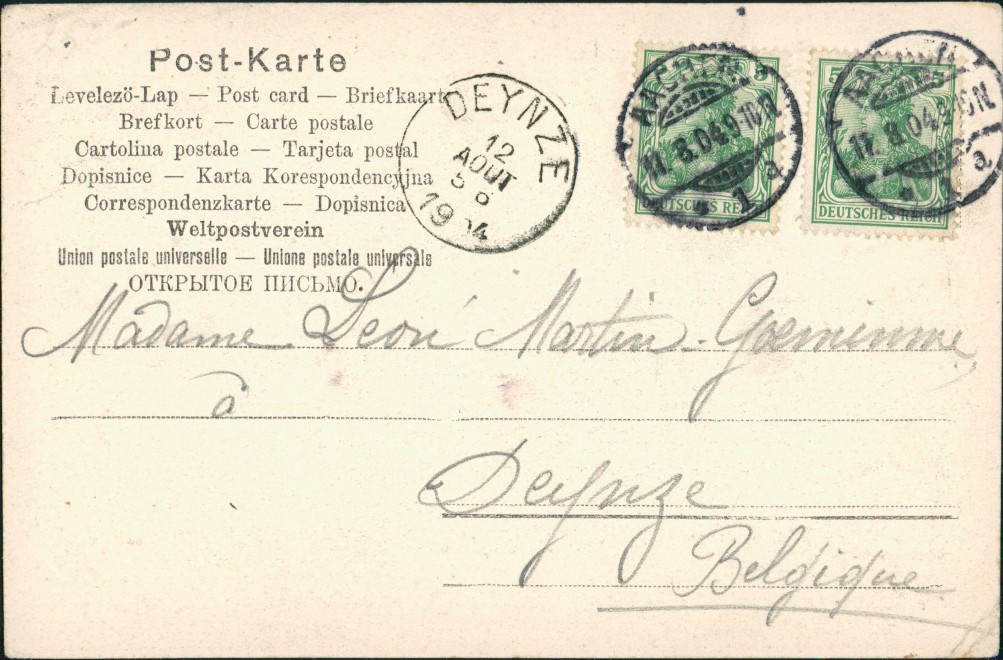 Post-Karte
Levelezö-Lap — Post card — Briefkaart
Brefkort — Carte postale
Cartolina postale — Tarjeta postal
Dopisnice — Karta Korespondencyjna
Correspondenzkarte — Dopisnica
Weltpostverein
Union postale universelle — Unione postale universale
ОТКРЫТОЕ ПИСЬМО.
DEYNZE
12
AOUT
1904
DEUTSCHES REICH
11.8.04.9-10.N.
1 a
DEUTSCHES REICH
11.8.04.
Madame Léon Martin-Goeminne
à
Deynze
Belgique